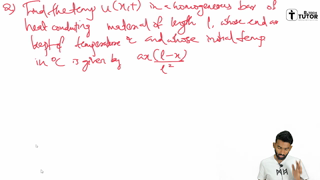 2) Find the temp u(x,t) in a homogeneous bar of
heat conducting material of length l, whose end are
kept at temperature °C and whose initial temp
in °C is given by ax(l-x)/l²
TUTOR